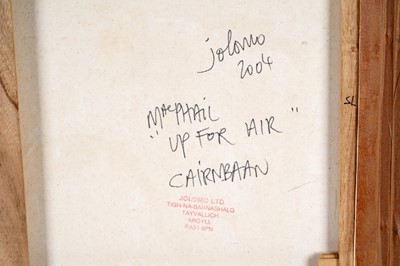 jolomo
2004
SL
MacPHAIL
"UP FOR AIR"
CAIRNBAAN
JOLOMO LTD.
TIGH-NA-BARNASHALG
TAYVALLICH
ARGYLL
PA31 8PN